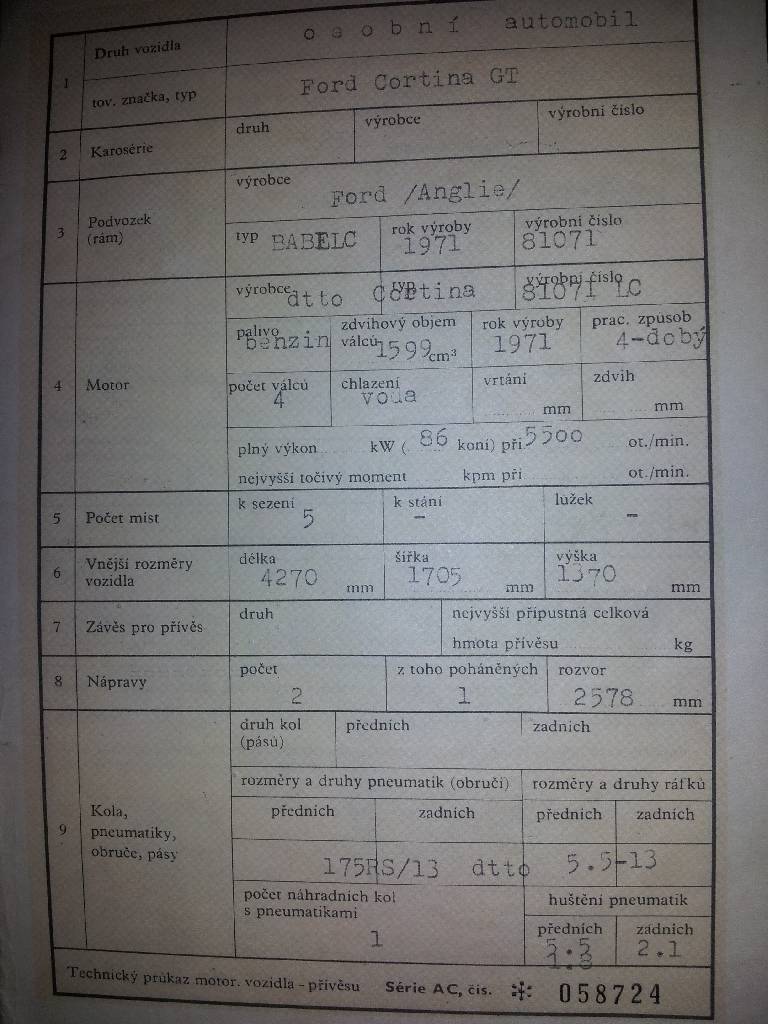 1 Druh vozidla osobní automobil
tov. značka, typ Ford Cortina GT
2 Karosérie druh výrobce výrobní číslo
3 Podvozek (rám) výrobce Ford /Anglie/
typ BABELC rok výroby 1971 výrobní číslo 81071
4 Motor výrobce dtto typ Cortina výrobní číslo 81071 LC
palivo benzin zdvihový objem válců 1599 cm³ rok výroby 1971 prac. způsob 4-dobý
počet válců 4 chlazení voda vrtání mm zdvih mm
plný výkon kW ( 86 koní) při 5500 ot./min.
nejvyšší točivý moment kpm při ot./min.
5 Počet míst k sezení 5 k stání – lůžek –
6 Vnější rozměry vozidla délka 4270 mm šířka 1705 mm výška 1370 mm
7 Závěs pro přívěs druh nejvyšší přípustná celková hmota přívěsu kg
8 Nápravy počet 2 z toho poháněných 1 rozvor 2578 mm
9 Kola, pneumatiky, obruče, pásy
druh kol (pásů) předních zadních
rozměry a druhy pneumatik (obručí) rozměry a druhy ráfků
předních zadních předních zadních
175RS/13 dtto 5.5-13
počet náhradních kol s pneumatikami 1 huštění pneumatik
předních zadních 2.1
Technický průkaz motor. vozidla – přívěsu Série AC, čís. 058724